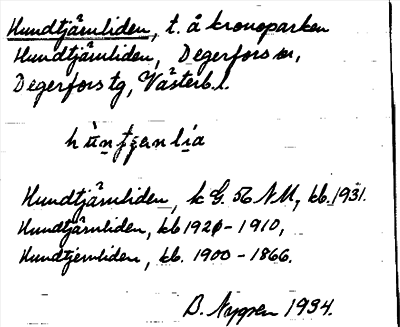 Hundtjärnliden, t. å kronoparken
Hundtjärnliden, Degerfors sn,
Degerfors tg, Västerb. l.
hùntʃæ̣nlìa
Hundtjärnliden, k G. 56 NM, kb. 1931.
Hundtjärnliden, kb 1920-1910,
Hundtjernliden, kb. 1900-1866.
B. Nygren 1934.